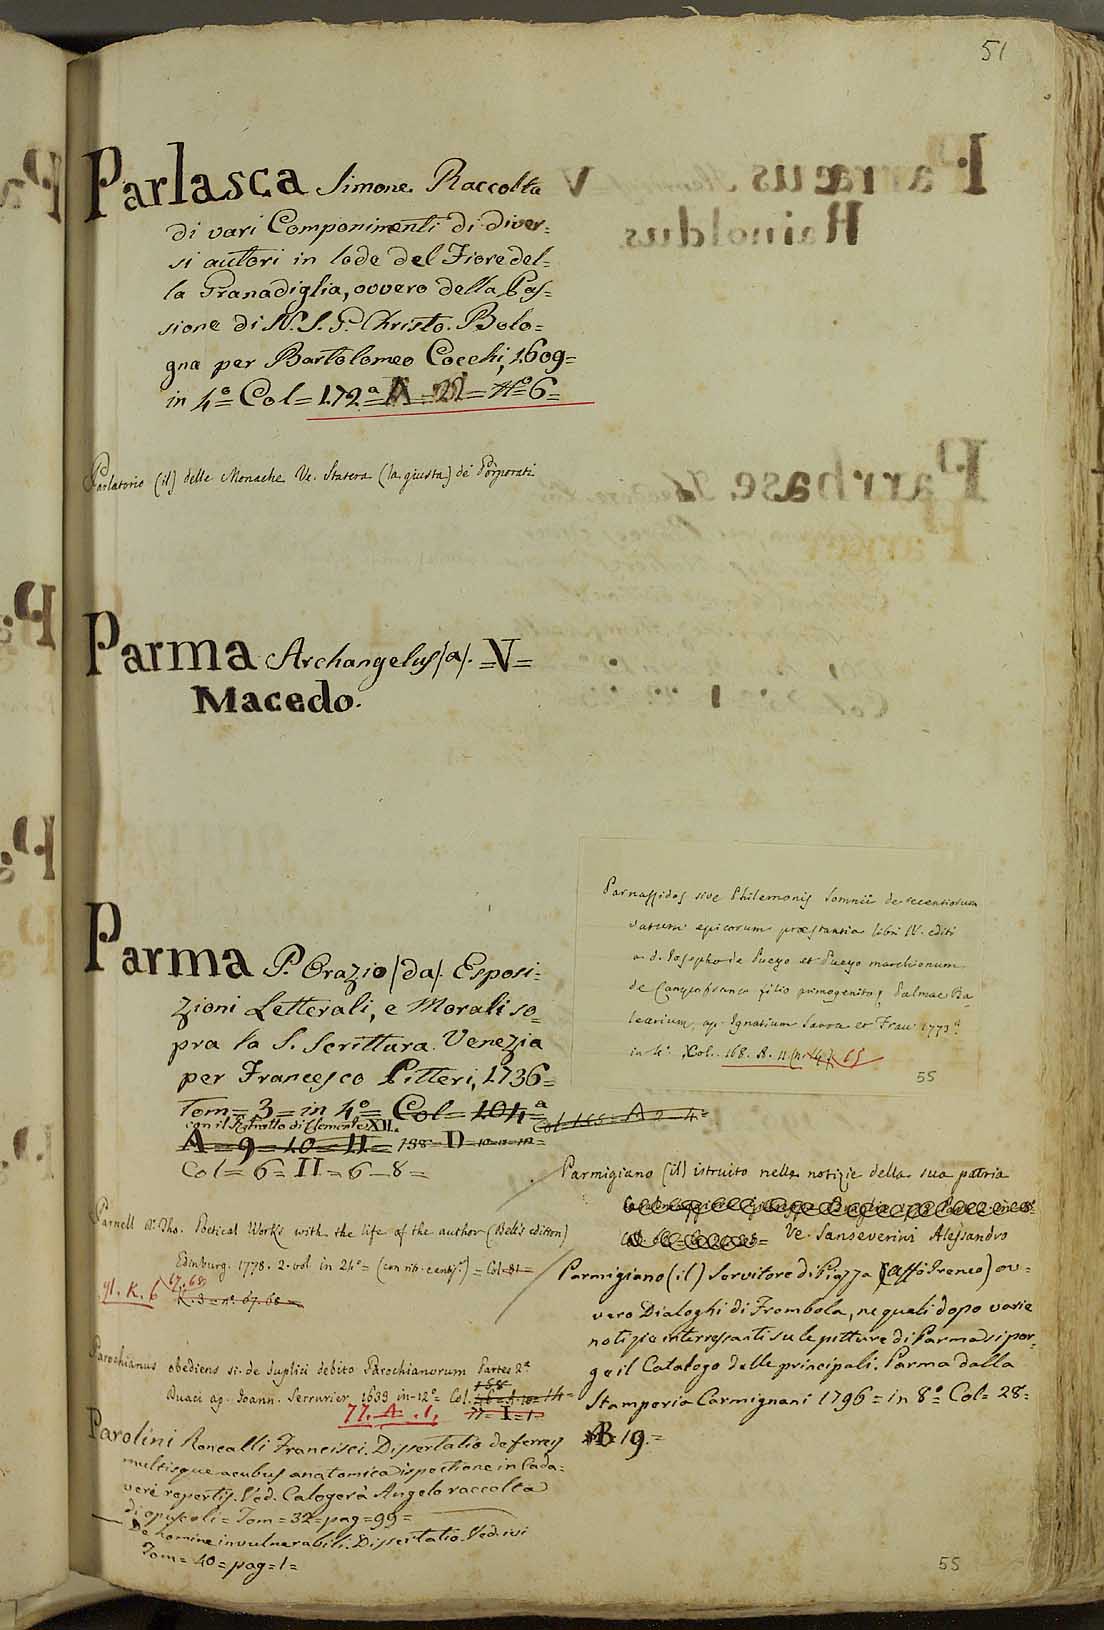 51
Parlasca Simone. Raccolta
di vari Componimenti di diver=
si autori in lode del Fiore del=
la Granadiglia, ovvero della Pas=
sione di N. S. G. Christo. Bolo=
gna per Bartolomeo Cocchi, 1609=
in 4º= Col= 172ª= A = 22= Nº 6=
Parlatorio (il) delle Monache Ve. Statera (la giusta) de' Porporati
Parma Archangelus /a/. =V=
Macedo.
Parma P. Orazio /da/. Esposi=
zioni Letterali, e Morali so=
pra la S. Scrittura. Venezia
per Francesco Pitteri, 1736=
Tom= 3= in 4º= Col= 104ª
con il Ritratto di Clemente XII.
A = 9 = 10 = 11 = 138= D
Col= 6= II= 6_8=
Parnell Dr. Tho. Poetical Works with the life of the author (Bell's edition)
Edinburg. 1778. 2. vol in 24º= (con rit. = Col. 81=
91. K. 6 67. 68
K. 3= nº. 67. 68=
Parochianus obediens si. de duplici debito Parochianorum Partes 2ª
168
Duaci ap. Joann. Serrurier 1633 in-12º= Col. 14=
77. A. 1. 77= I= 1
Parolini Roncalli Francisci. Dissertatio de ferreis
multisque acubus anatomica inspectione in Cada=
vere repertis. Ved. Calogerà Angelo raccolta
di opuscoli= Tom= 32= pag= 99=
— De homine invulnerabili. Dissertatio. Ved. ivi
Tom= 40= pag= 1=
Parnassidos sive Philemonis Somnii de recentiorum
vatum epicorum præstantia libri IV. editi
a d. Josepho de Pueyo et Pueyo marchionum
de Campofranco filio primogenito; Palmae Ba
learium, ap. Ignatium Sarra et Frau 1773
in 4º. Col. 168. A. 11 (n. 14) 65
55
Col. 166= A 2 4=
Parmigiano (il) istruito nelle notizie della sua patria
Ve. Sanseverini Alessandro
Parmigiano (il) Servitore di Piazza (Affò Ireneo) ov=
vero Dialoghi di Frombola, ne quali dopo varie
notizie interressanti su le pitture di Parma si por=
ge il Catalogo delle principali. Parma dalla
Stamperia Carmignani 1796= in 8º= Col= 28=
B= 19.=
55